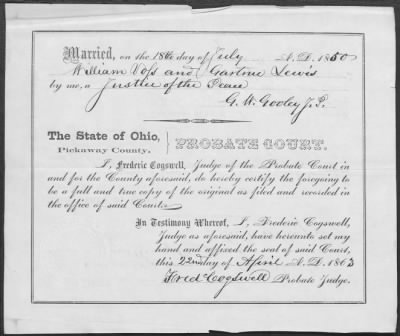 Married, on the 18th day of July A. D. 1850
William Voss and Gartrue Lewis
by me, a Justice of the Peace
G. W. Gooley J. P.
The State of Ohio,
Pickaway County.
PROBATE COURT.
I, Frederic Cogswell, Judge of the Probate Court in
and for the County aforesaid, do hereby certify the foregoing to
be a full and true copy of the original as filed and recorded in
the office of said Court.
In Testimony Whereof, I, Frederic Cogswell,
Judge as aforesaid, have hereunto set my
hand and affixed the seal of said Court,
this 22nd day of April A. D. 1863
Fred Cogswell Probate Judge.